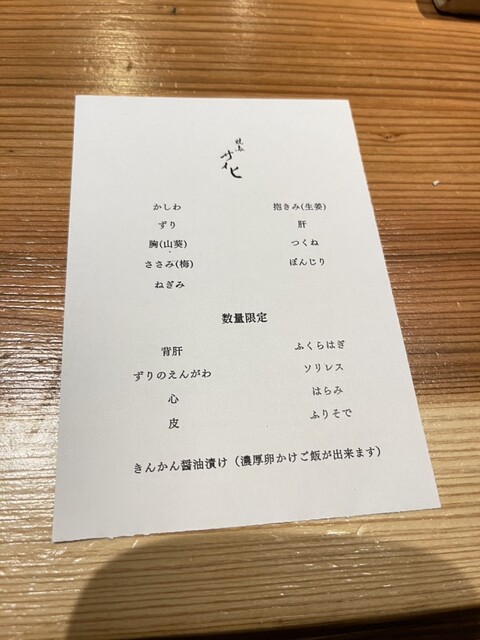 かしわ
ずり
胸(山葵)
ささみ(梅)
ねぎみ
抱きみ(生姜)
肝
つくね
ぼんじり
数量限定
背肝
ずりのえんがわ
心
皮
ふくらはぎ
ソリレス
はらみ
ふりそで
きんかん醤油漬け（濃厚卵かけご飯が出来ます）